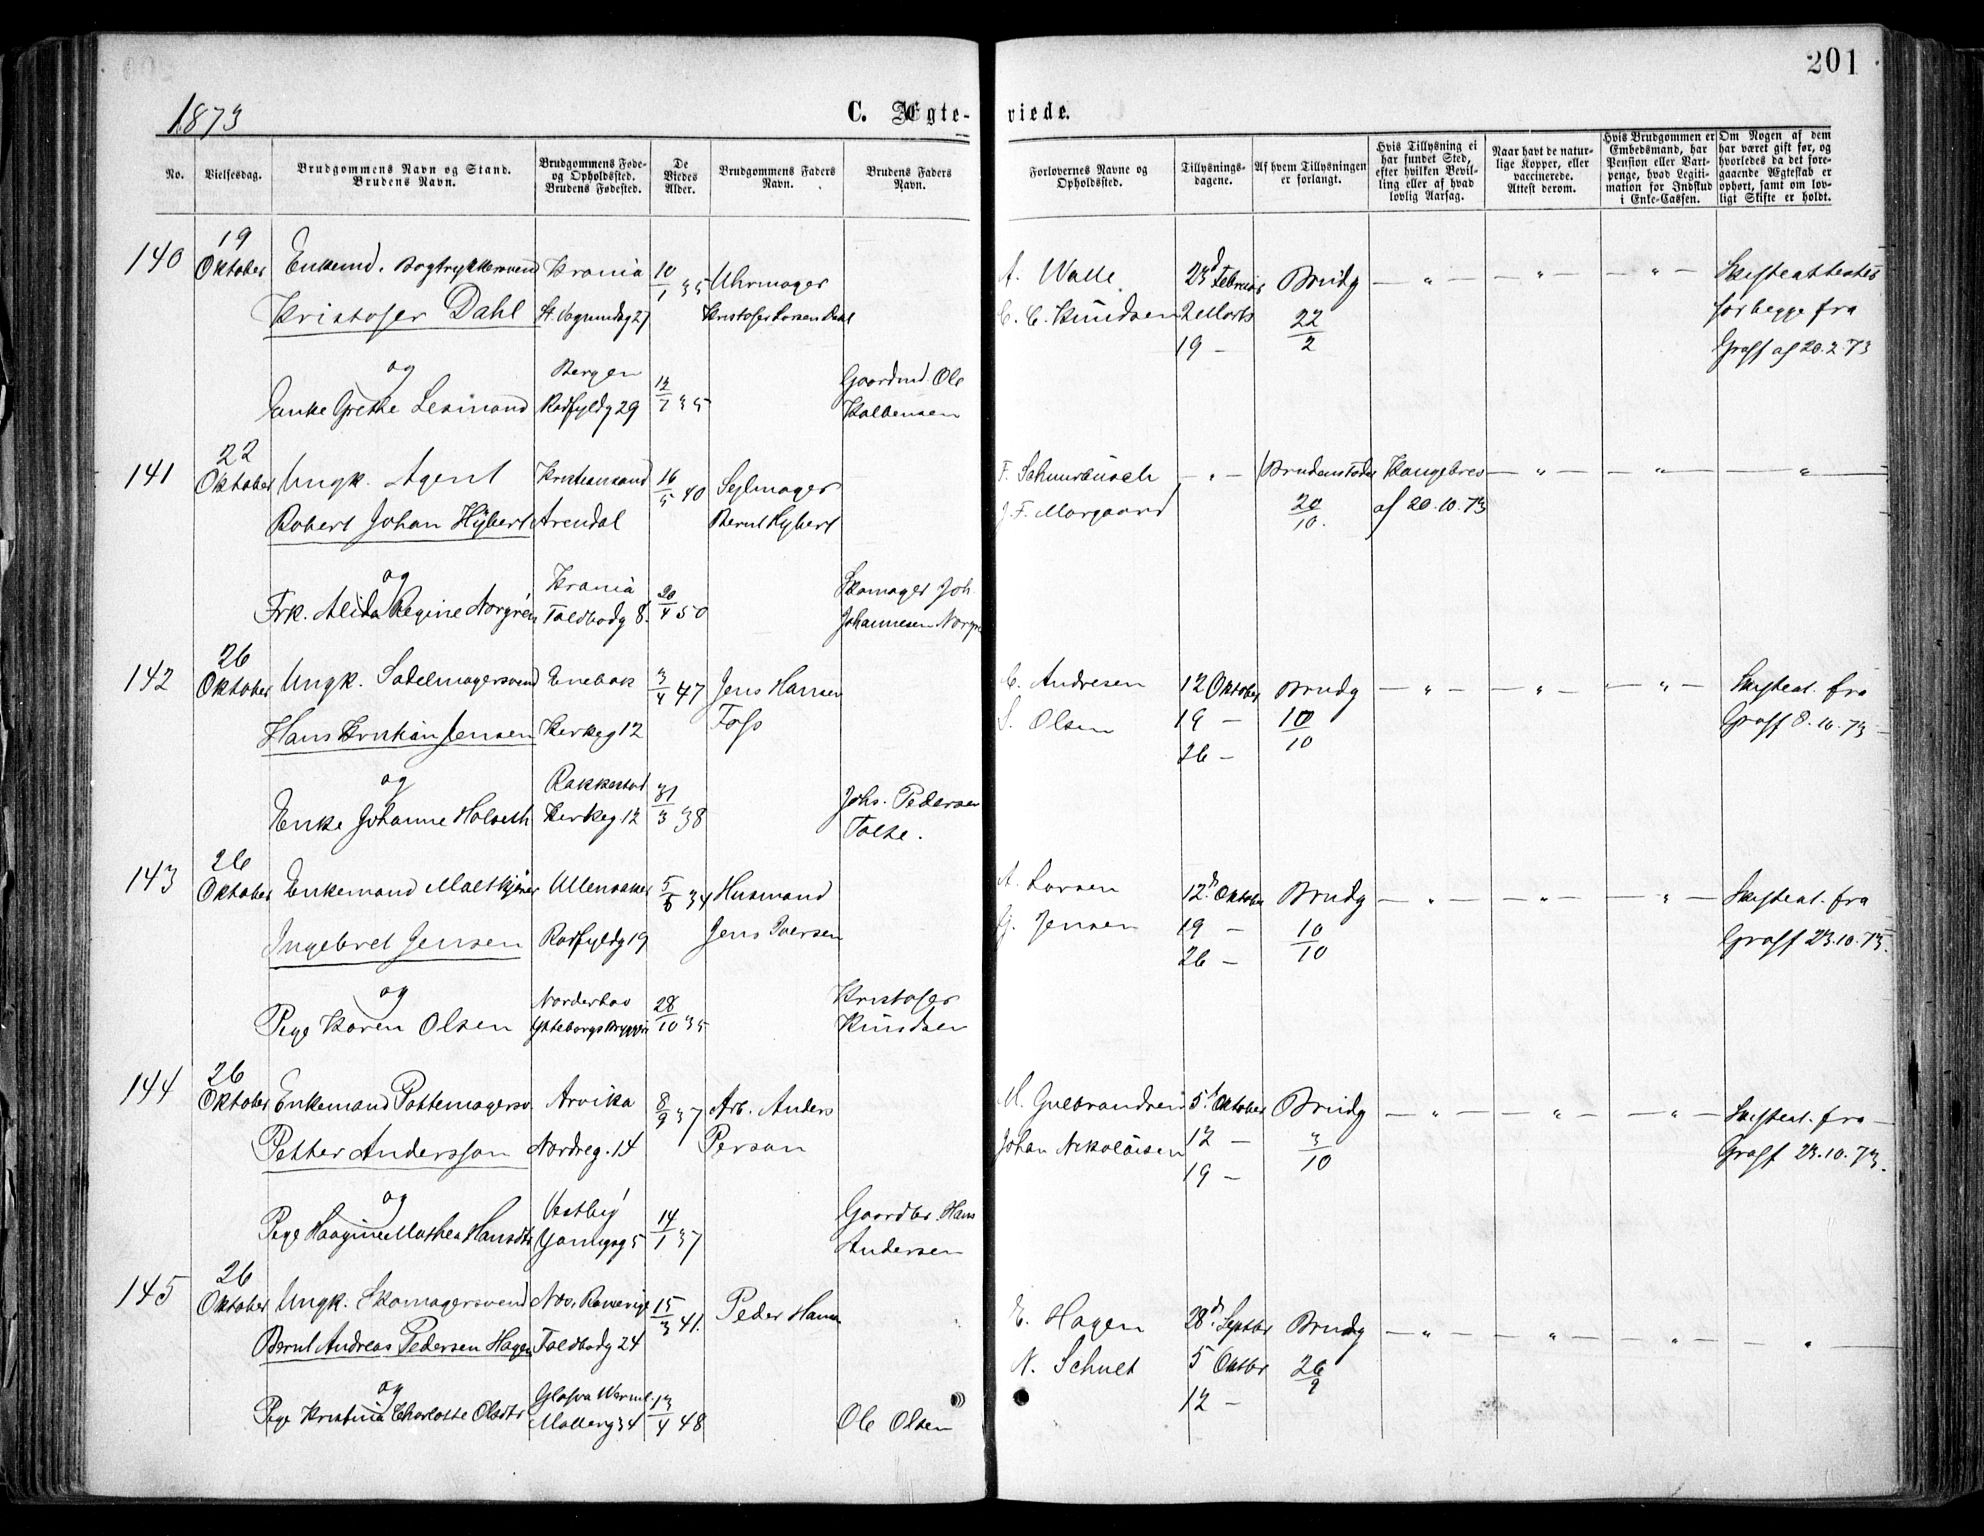 201
1873
C. Ægte-
viede.
No.
Vielsesdag.
Brudgommens Navn og Stand.
Brudens Navn.
Brudgommens Føde-
og Opholdssted.
Brudens Fødested.
De
Viedes
Alder.
Brudgommens Faders
Navn.
Brudens Faders
Navn.
Forlovernes Navne og
Opholdssted.
Tillysnings-
dagene.
Af hvem Tillysningen
er forlangt.
Hvis Tillysning ei
har fundet Sted,
efter hvilken Bevil-
ling eller af hvad
lovlig Aarsag.
Naar havt de natur-
lige Kopper, eller
vaccinerede.
Attest derom.
Hvis Brudgommen er
Embedsmand, har
Pension eller Vart-
penge, hvad Legiti-
mation for Indskud
i Enke-Cassen.
Om Nogen af dem
har været gift før, og
hvorledes da det fore-
gaaende Ægteskab er
ophørt, samt om lov-
ligt Skifte er holdt.
140
19
Oktober
Enkemd. Bogtrykkersvend
Kristofer Dahl
og
Grethe
Krania
27
Bergen
Rødfyldg 29
10/1 35
12/7 35
Uhrmager
Kristofer Larsen Dahl
Gaardmd. Ole
A. Walle
C. C. Knudsen
23d Februar
2 Marts
19 —
Brudg
22/2
— " —
— " —
— " —
Skifteattester
for begge fra
Graff af 20.2.73
141
22
Oktober
Ungk. Agent
Robert Johan Hybert
og
Frk. Alida Regine Norgren
Kristiansand
Arendal
Krania
Toldbodg 8.
16/5 40
20/4 50
Seilmager
Bernt Hybert
Skomager Joh
Johannesen
F.
J. F. Morgaard
— " —
Brudens
20/10.
Kongebrev
af 20.10.73
— " —
— " —
— " —
142
26
Oktober
Ungk. Sadelmagersvend
Hans Kristian Jensen
og
Enke Johanne Holseth
Enebak
Kirkeg 12
Rakkestad
Kirkeg 12
3/4 47
31/3 38
Jens Hansen
Foss
Johs. Pedersen
C. Andresen
S. Olsen
12 Oktober
19 —
26 —
Brudg
10/10
— " —
— " —
— " —
Skifteat. fra
Graff 8.10.73 —
143
26
Oktober
Enkemand
Ingebret Jensen
og
Pige Karen Olsen
Ullensaker
Rødfyldg 19
Norderhov
5/6 34
28/10 35
Husmand
Jens Iversen
Kristofer
Knudsen
A. Larsen
G. Jensen
12d. Oktober
19 —
26 —
Brudg
10/10
— " —
— " —
— " —
Skifteat. fra
Graff 23.10.73.
144
26
Oktober
Enkemand Pottemagersv.
Petter Andersson
og
Pige Mathea Hansdtr
Arvika
Nordreg. 14
Vestby
5
8/9 37
14/1 37
Arb. Anders
Person
Gaardbr. Hans
Andersen
M. Gulbrandsen
Johan Nikolaisen
5d Oktober
12 —
19 —
Brudg
3/10
— " —
— " —
— " —
Skifteat. fra —
Graff 23.10.73.
145
26
Oktober
Ungk. Skomagersvend
Bernt Andreas Pedersen Hagen
og
Pige Kristina Charlotte Olsdtr
Toldbodg 24
Møllerg 34
15/3 41.
13/4 48
Peder Hansen
Ole Olsen
E. Hagen
N. Schult
28d. Septbr
5 Oktbr
12 —
Brudg
26/9
— " —
— " —
— " —
— " —